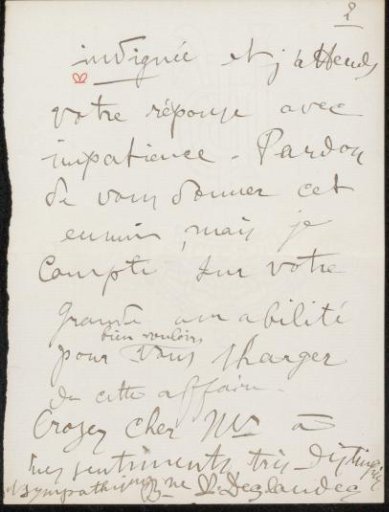 2
indignée et j'attends
votre réponse avec
impatience. Pardon
de vous donner cet
ennui, mais je
compte sur votre
grande amabilité
bien vouloir
pour vous charger
de cette affaire.
Croyez cher Mr à
mes sentiments très distingués
et sympathiques